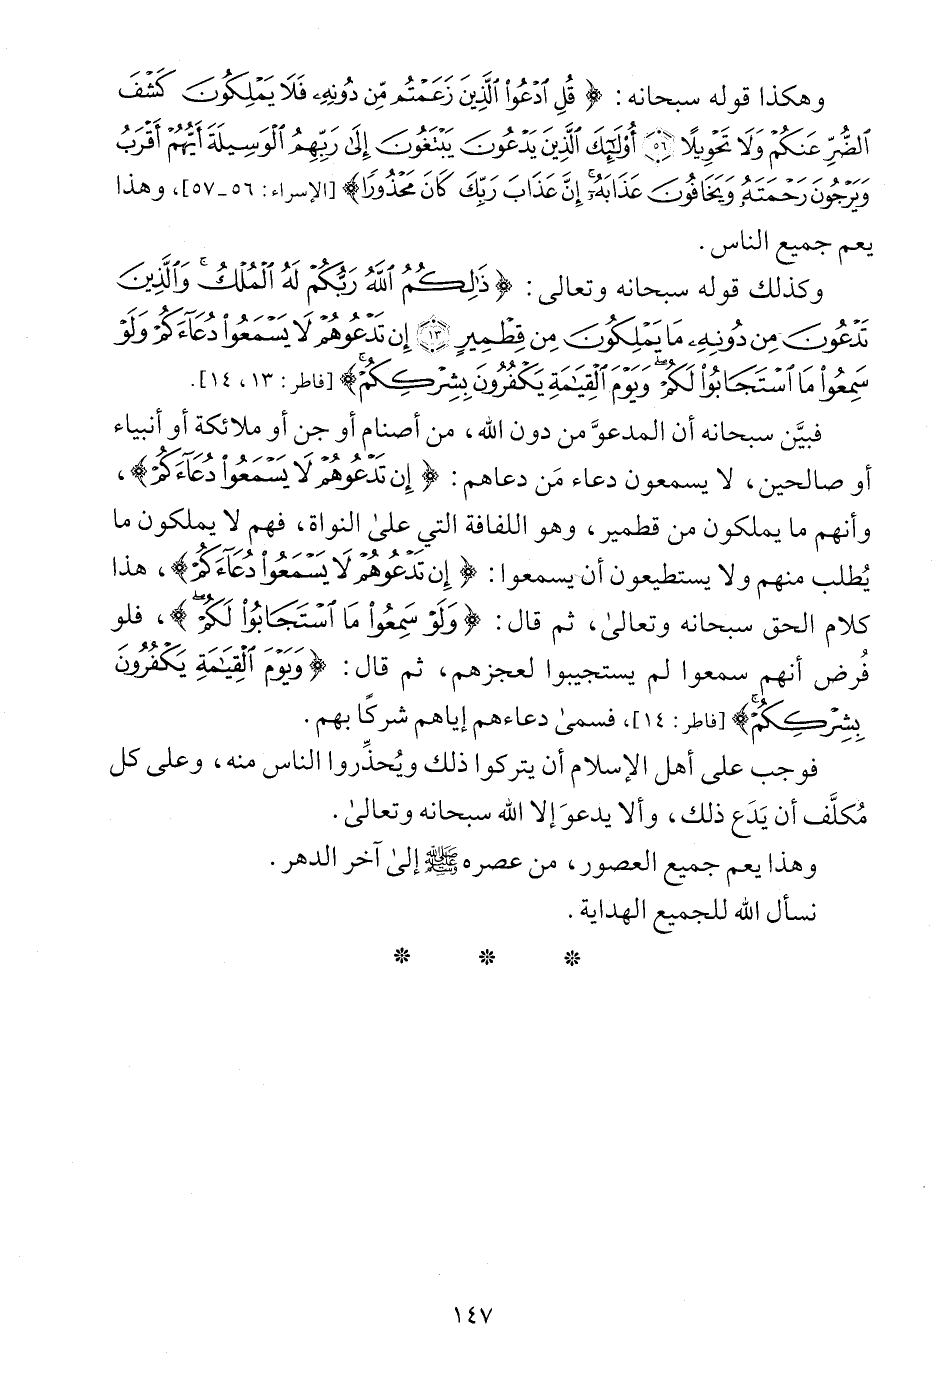 وهكذا قوله سبحانه: ﴿قُلِ ٱدْعُوا۟ ٱلَّذِينَ زَعَمْتُم مِّن دُونِهِۦ فَلَا يَمْلِكُونَ كَشْفَ
ٱلضُّرِّ عَنكُمْ وَلَا تَحْوِيلًا ٥٦ أُو۟لَٰٓئِكَ ٱلَّذِينَ يَدْعُونَ يَبْتَغُونَ إِلَىٰ رَبِّهِمُ ٱلْوَسِيلَةَ أَيُّهُمْ أَقْرَبُ
وَيَرْجُونَ رَحْمَتَهُۥ وَيَخَافُونَ عَذَابَهُۥٓ ۚ إِنَّ عَذَابَ رَبِّكَ كَانَ مَحْذُورًا﴾ [الإسراء: ٥٦ـ٥٧]، وهذا
يعم جميع الناس.
وكذلك قوله سبحانه وتعالى: ﴿ذَٰلِكُمُ ٱللَّهُ رَبُّكُمْ لَهُ ٱلْمُلْكُ ۚ وَٱلَّذِينَ
تَدْعُونَ مِن دُونِهِۦ مَا يَمْلِكُونَ مِن قِطْمِيرٍ ١٣ إِن تَدْعُوهُمْ لَا يَسْمَعُوا۟ دُعَآءَكُمْ وَلَوْ
سَمِعُوا۟ مَا ٱسْتَجَابُوا۟ لَكُمْ ۖ وَيَوْمَ ٱلْقِيَٰمَةِ يَكْفُرُونَ بِشِرْكِكُمْ ۚ﴾ [فاطر: ١٣، ١٤].
فبيَّن سبحانه أن المدعوَّ من دون الله، من أصنام أو جن أو ملائكة أو أنبياء
أو صالحين، لا يسمعون دعاء مَن دعاهم: ﴿إِن تَدْعُوهُمْ لَا يَسْمَعُوا۟ دُعَآءَكُمْ﴾،
وأنهم ما يملكون من قطمير، وهو اللفافة التي علىٰ النواة، فهم لا يملكون ما
يُطلب منهم ولا يستطيعون أن يسمعوا: ﴿إِن تَدْعُوهُمْ لَا يَسْمَعُوا۟ دُعَآءَكُمْ﴾، هذا
كلام الحق سبحانه وتعالىٰ، ثم قال: ﴿وَلَوْ سَمِعُوا۟ مَا ٱسْتَجَابُوا۟ لَكُمْ ۖ﴾، فلو
فُرض أنهم سمعوا لم يستجيبوا لعجزهم، ثم قال: ﴿وَيَوْمَ ٱلْقِيَٰمَةِ يَكْفُرُونَ
بِشِرْكِكُمْ ۚ﴾ [فاطر: ١٤]، فسمىٰ دعاءهم إياهم شركًا بهم.
فوجب على أهل الإسلام أن يتركوا ذلك ويُحذِّروا الناس منه، وعلى كل
مُكلَّف أن يَدَع ذلك، وألا يدعوَ إلا الله سبحانه وتعالىٰ.
وهذا يعم جميع العصور، من عصره ﷺ إلىٰ آخر الدهر.
نسأل الله للجميع الهداية.
* * *
١٤٧